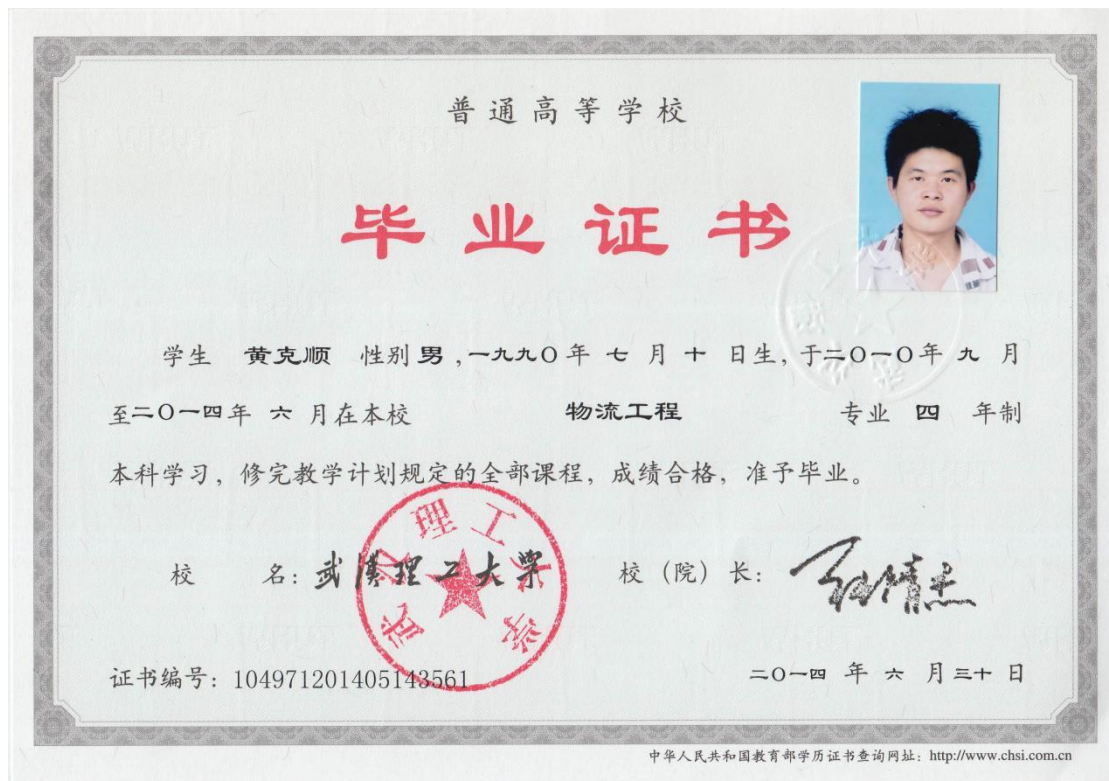 普通高等学校
毕业证书
学生 黄克顺 性别 男，一九九〇年 七 月 十 日生，于二〇一〇年 九 月
至二〇一四年 六 月在本校 物流工程 专业 四 年制
本科学习，修完教学计划规定的全部课程，成绩合格，准予毕业。
校 名：武漢理工大学 校（院）长：
武汉理工大学
证书编号：104971201405143561 二〇一四 年 六 月三十 日
中华人民共和国教育部学历证书查询网址：http://www.chsi.com.cn